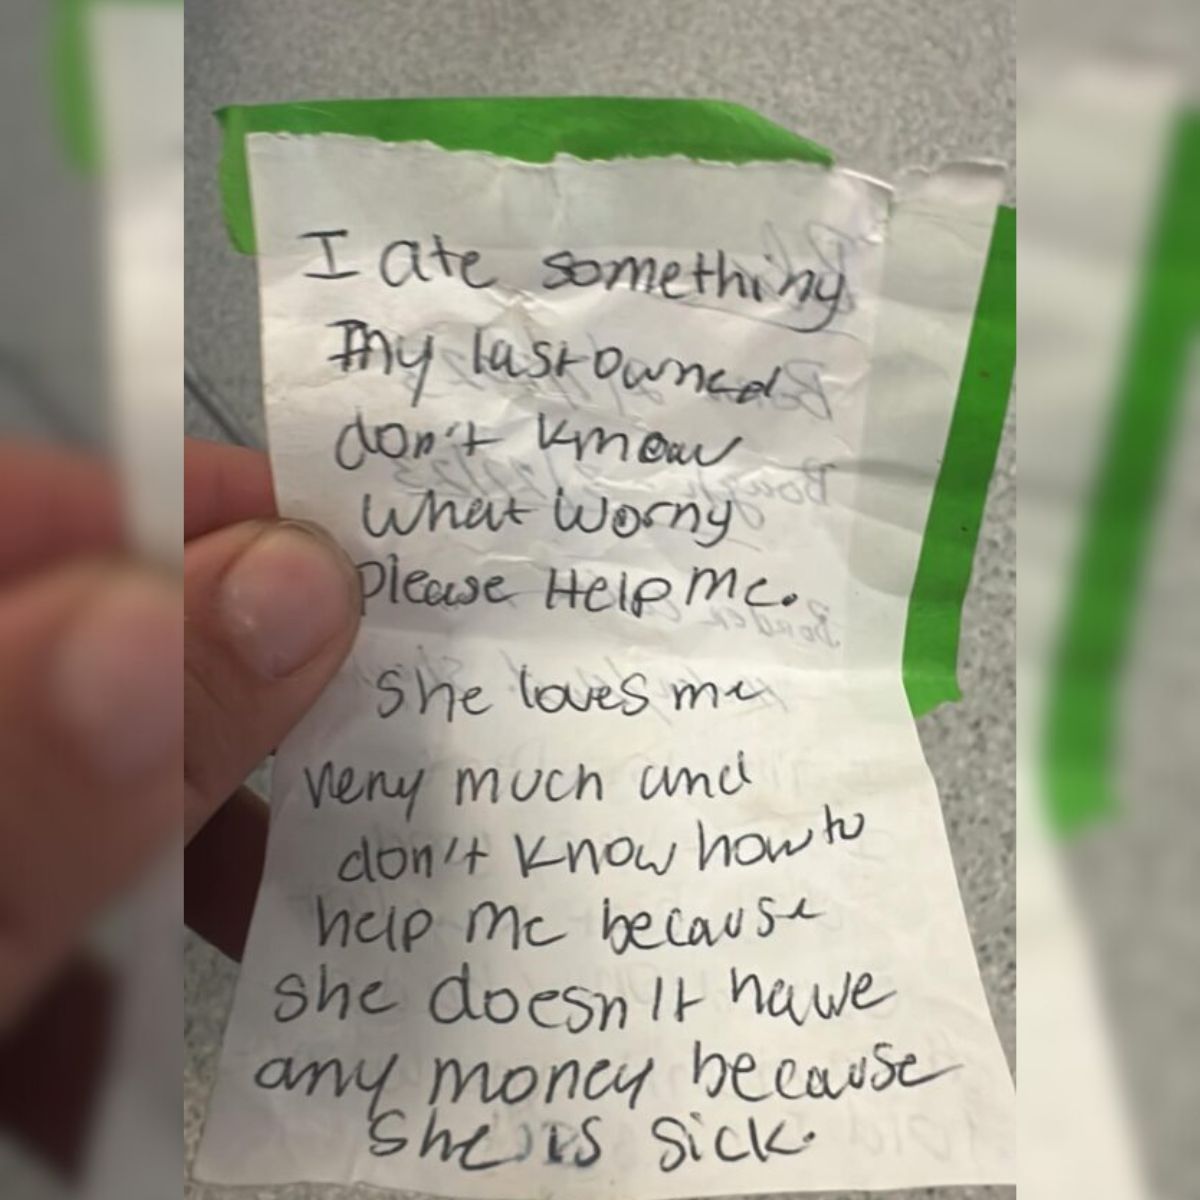 I ate something
my last owned
don't know
what worny
please Help me.
she loves me
veny much and
don't know how to
help me because
she doesn't hawe
any money because
she is sick.